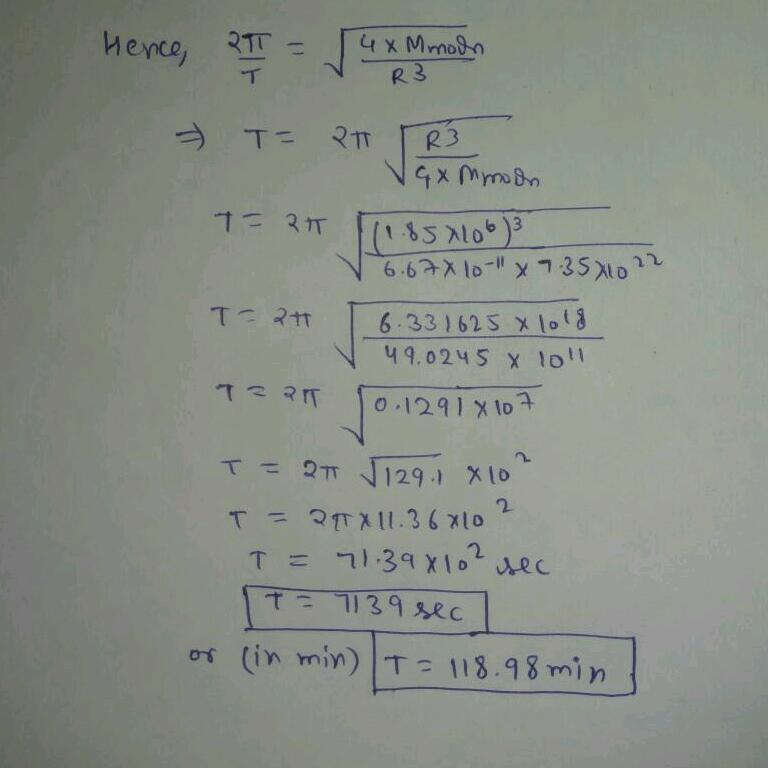 Hence, 2π/T = √(G × Mmoon / R3)
⇒ T = 2π √(R3 / G × Mmoon)
T = 2π √((1.85 × 10⁶)³ / 6.67 × 10⁻¹¹ × 7.35 × 10²²)
T = 2π √(6.331625 × 10¹⁸ / 49.0245 × 10¹¹)
T = 2π √(0.1291 × 10⁷)
T = 2π √129.1 × 10²
T = 2π × 11.36 × 10²
T = 71.39 × 10² sec
T = 7139 sec
or (in min) T = 118.98 min